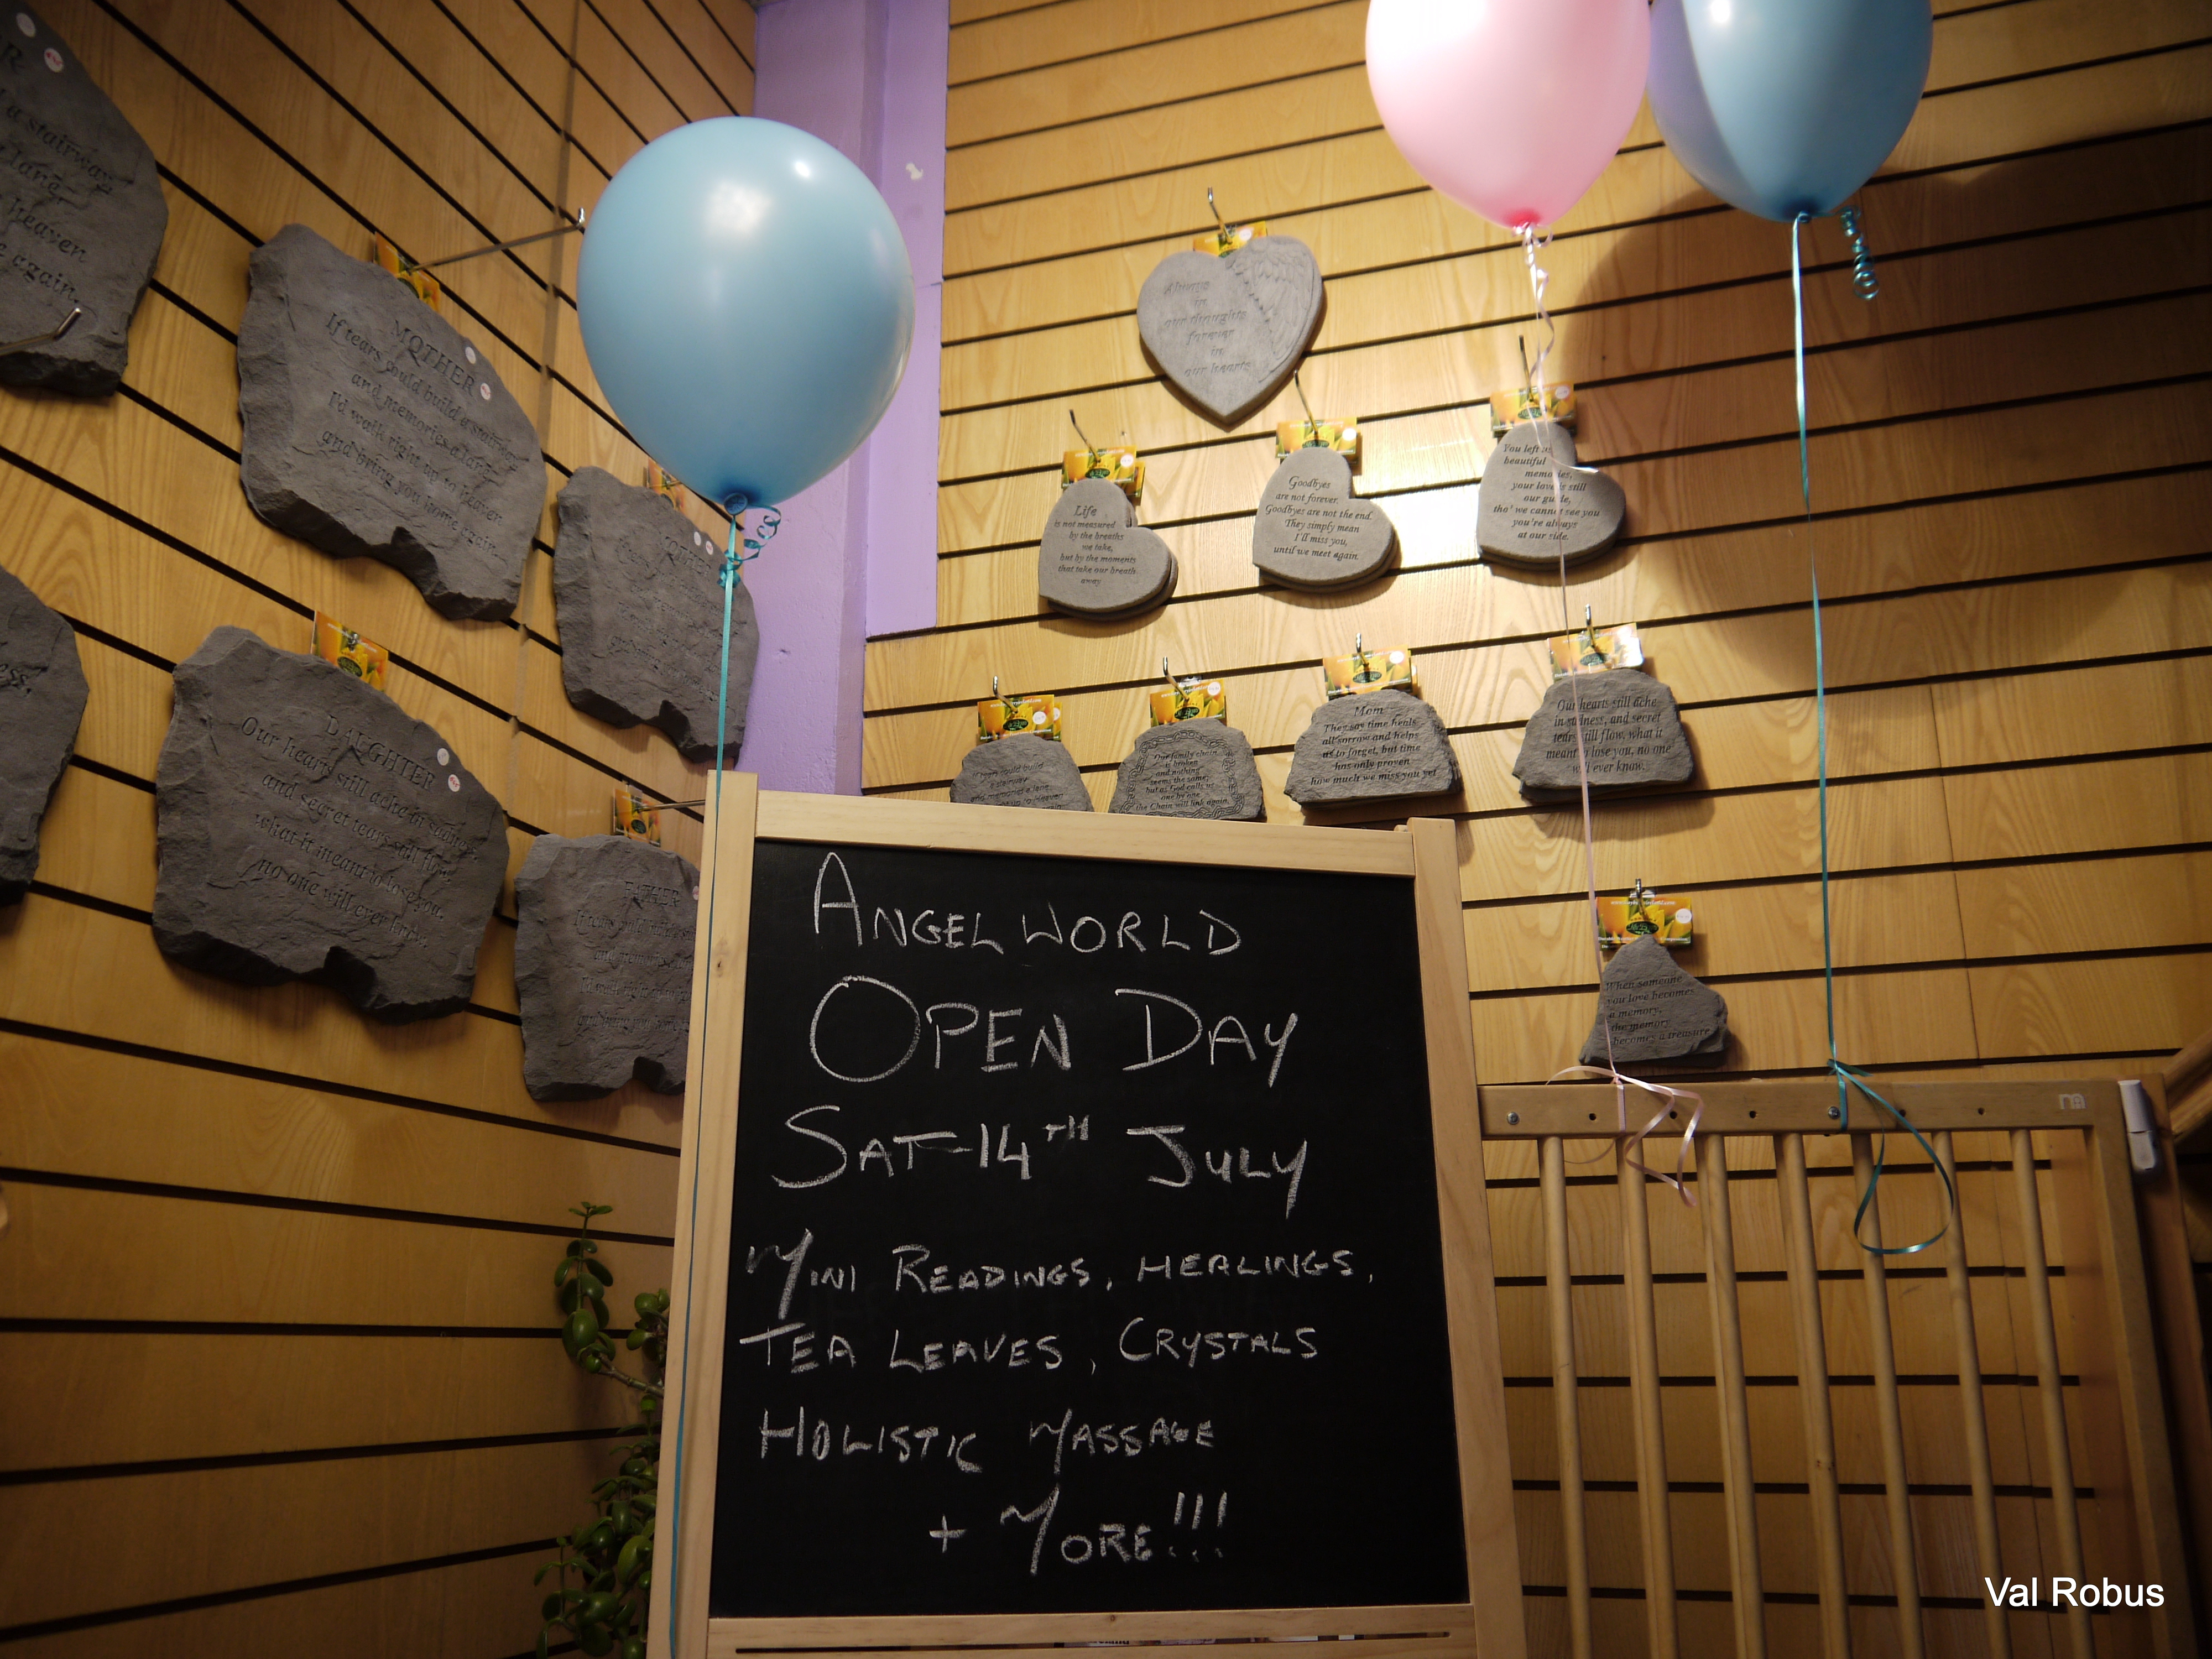 a stairway
lane,
heaven
again.
MOTHER
If tears could build a stairway
and memories a lane
I'd walk right up to heaven
and bring you home again
DAUGHTER
Our hearts still ache in sadness
and secret tears still flow,
what it meant to lose you,
no one will ever know.
FATHER
Always
in
our thoughts
forever
in
our hearts
Life
is not measured
by the breaths
we take,
but by the moments
that take our breath
away
Goodbyes
are not forever.
Goodbyes are not the end.
They simply mean
I'll miss you,
until we meet again.
You left us
beautiful
memories,
your love is still
our guide,
tho' we cannot see you
you're always
at our side.
If tears could build
a stairway
and memories a lane
Our family chain
is broken
and nothing
seems the same,
but as God calls us
one by one
the Chain will link again
Mom
They say time heals
all sorrow and helps
us to forget, but time
has only proven
how much we miss you yet
Our hearts still ache
in sadness, and secret
tears still flow, what it
meant to lose you, no one
will ever know.
When someone
you love becomes
a memory,
the memory
becomes a treasure
ANGELWORLD
OPEN DAY
SAT 14TH JULY
MINI READINGS, HEALINGS,
TEA LEAVES, CRYSTALS
HOLISTIC MASSAGE
+ MORE!!!
Val Robus